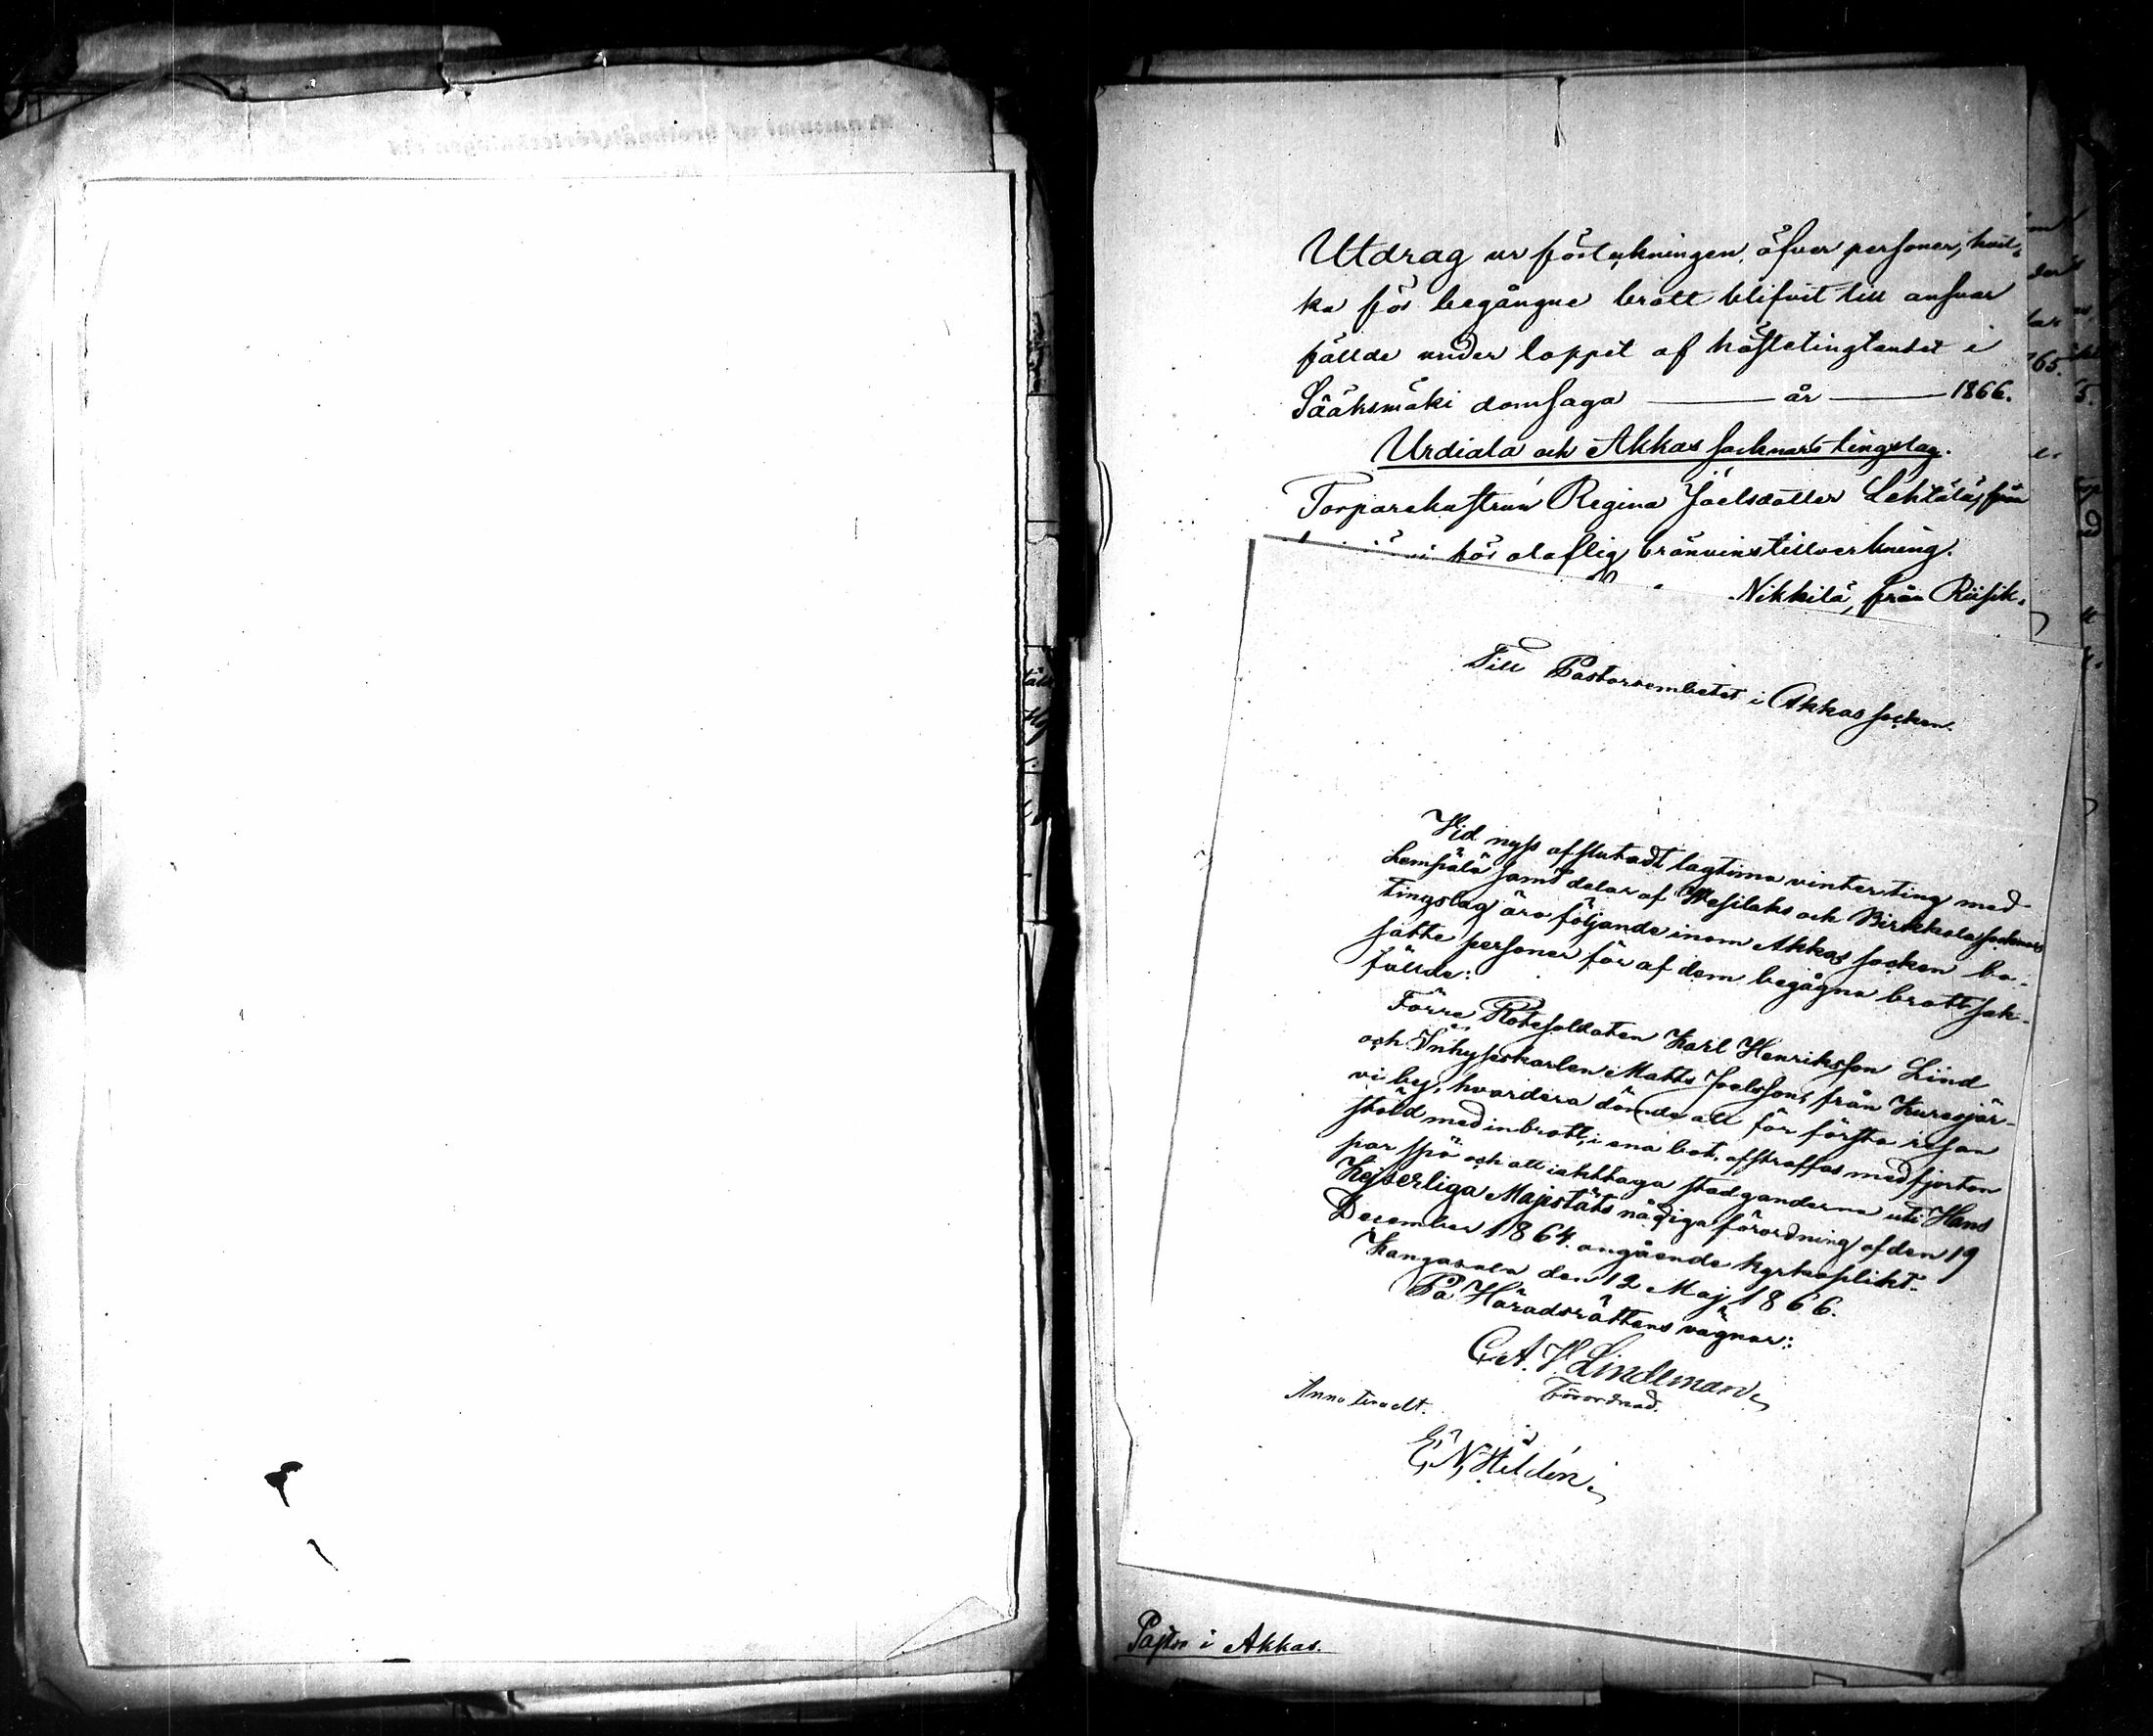 Utdrag ur förteckningen öfver personer, hvil-
ka för begångne brott blifvit till ansvar
fällde under loppet af höstetingtendet i
Sääksmäki domsaga ——— år ——— 1866.
Urdiala och Akkas socknars tingslag.
Torparehustrun Regina Joelsdotter Lehtälä, från
för olaflig bränvinstillverkning.
Nikkilä, från Riisik-
Till Pastorsembetet i Akkas socken.
Vid nyss afslutadt lagtima vinterting med
Lempälä samt delar af Wesilaks och Birkkala socknars
tingslag äro följande inom Akkas socken bo-
satte personer för af dem begågna brott sak-
fällde:
Förre Rotesoldaten Karl Henriksson Lind
och Inhyseskarlen Matts Joelsson, från Kuresjär-
vi by, hvardera dömde att för första resan
stöld med inbrott, i ena bot, afstraffas med fjorton
par spö och att iakttaga stadganderna uti Hans
Kejserliga Majestäts nådiga förordning af den 19
December 1864. angående kyrkoplikt.
Kangasala den 12 Maj 1866.
På Häradsrättens vägnar:
G. A. V Lindeman
Förordnad.
Annoteradt.
E. N. Hildén
Pastor i Akkas.
65.
5.